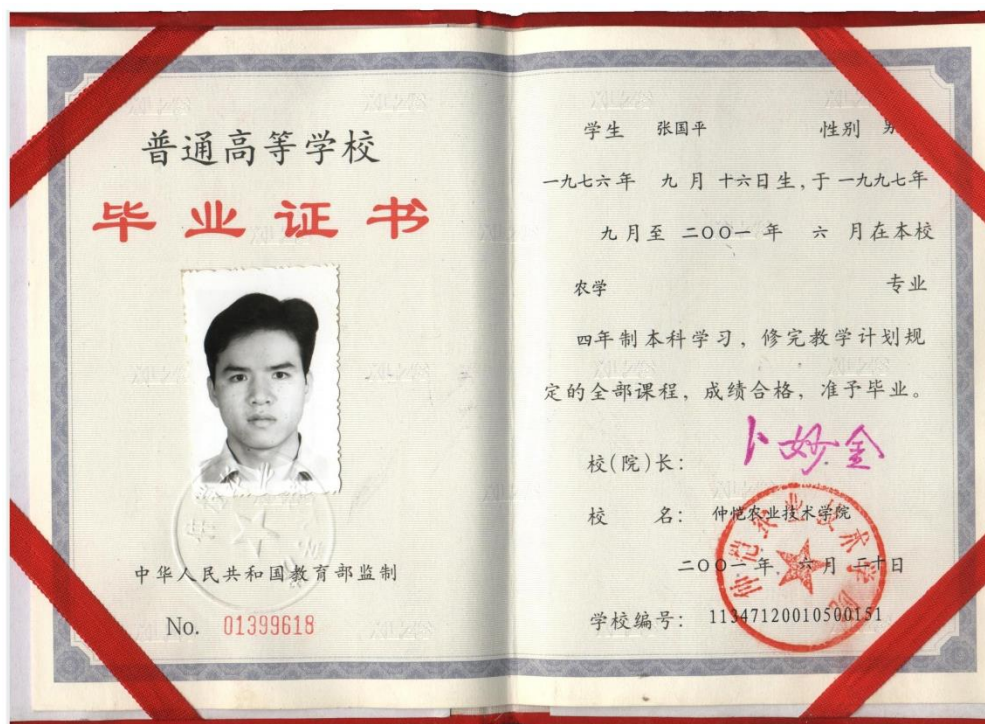 普通高等学校
毕业证书
中华人民共和国教育部监制
No. 01399618
学生 张国平 性别 男
一九七六年 九月十六日生,于一九九七年
九月至 二〇〇一年 六 月在本校
农学 专业
四年制本科学习,修完教学计划规
定的全部课程,成绩合格,准予毕业。
校(院)长: 卜妙金
校 名: 仲恺农业技术学院
二〇〇一年 六月 二十日
学校编号: 11347120010500151
仲恺农业技术学院